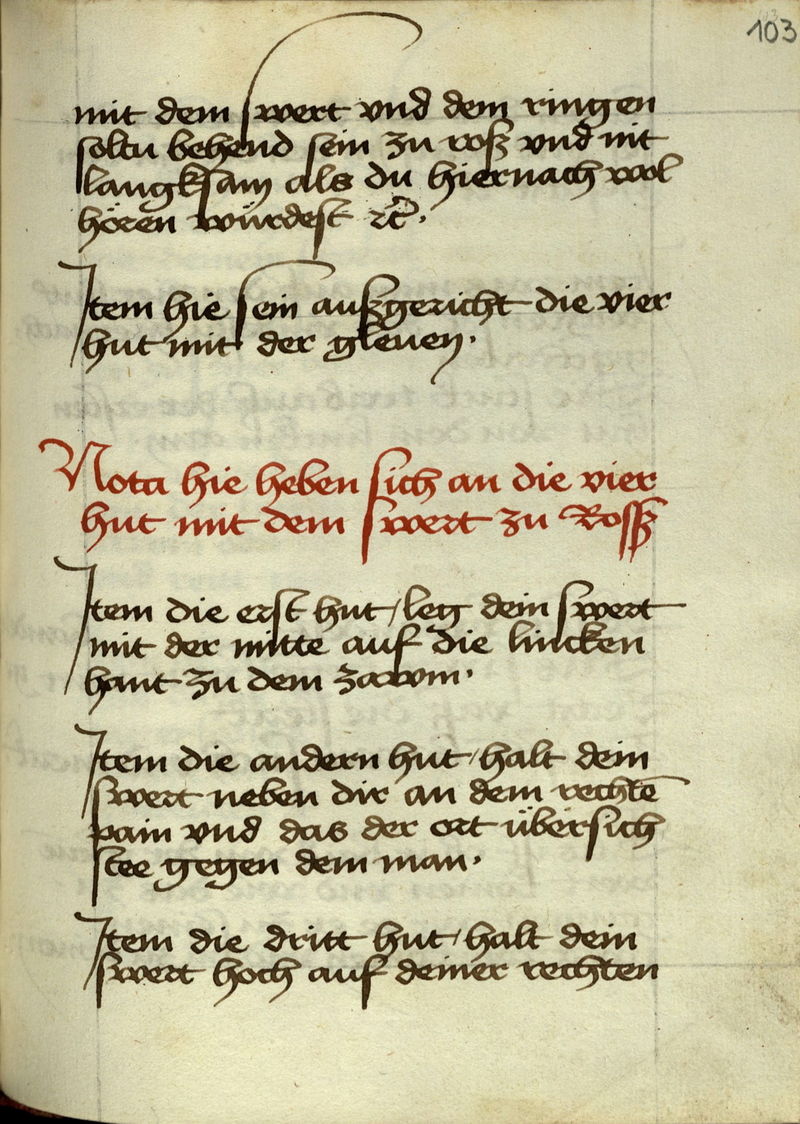 103
mit dem swert vnd dem ringen
soltu behend sein zu roß vnd nit
langksam als du hiernach wol
hören würdest ꝛc̃.
Item hie sein außgericht die vier
hut mit der gleuen.
Nota hie heben sich an die vier
hut mit dem swert zu Rosß
Item die erst hut / leg dein swert
mit der mitte auf die lincken
hant zu dem zawm.
Item die andern hut / halt dein
swert neben dir an dem rechtē
pain vnd das der ort übersich
stee gegen dem man.
Item die dritt hut / halt dein
swert hoch auf deiner rechten